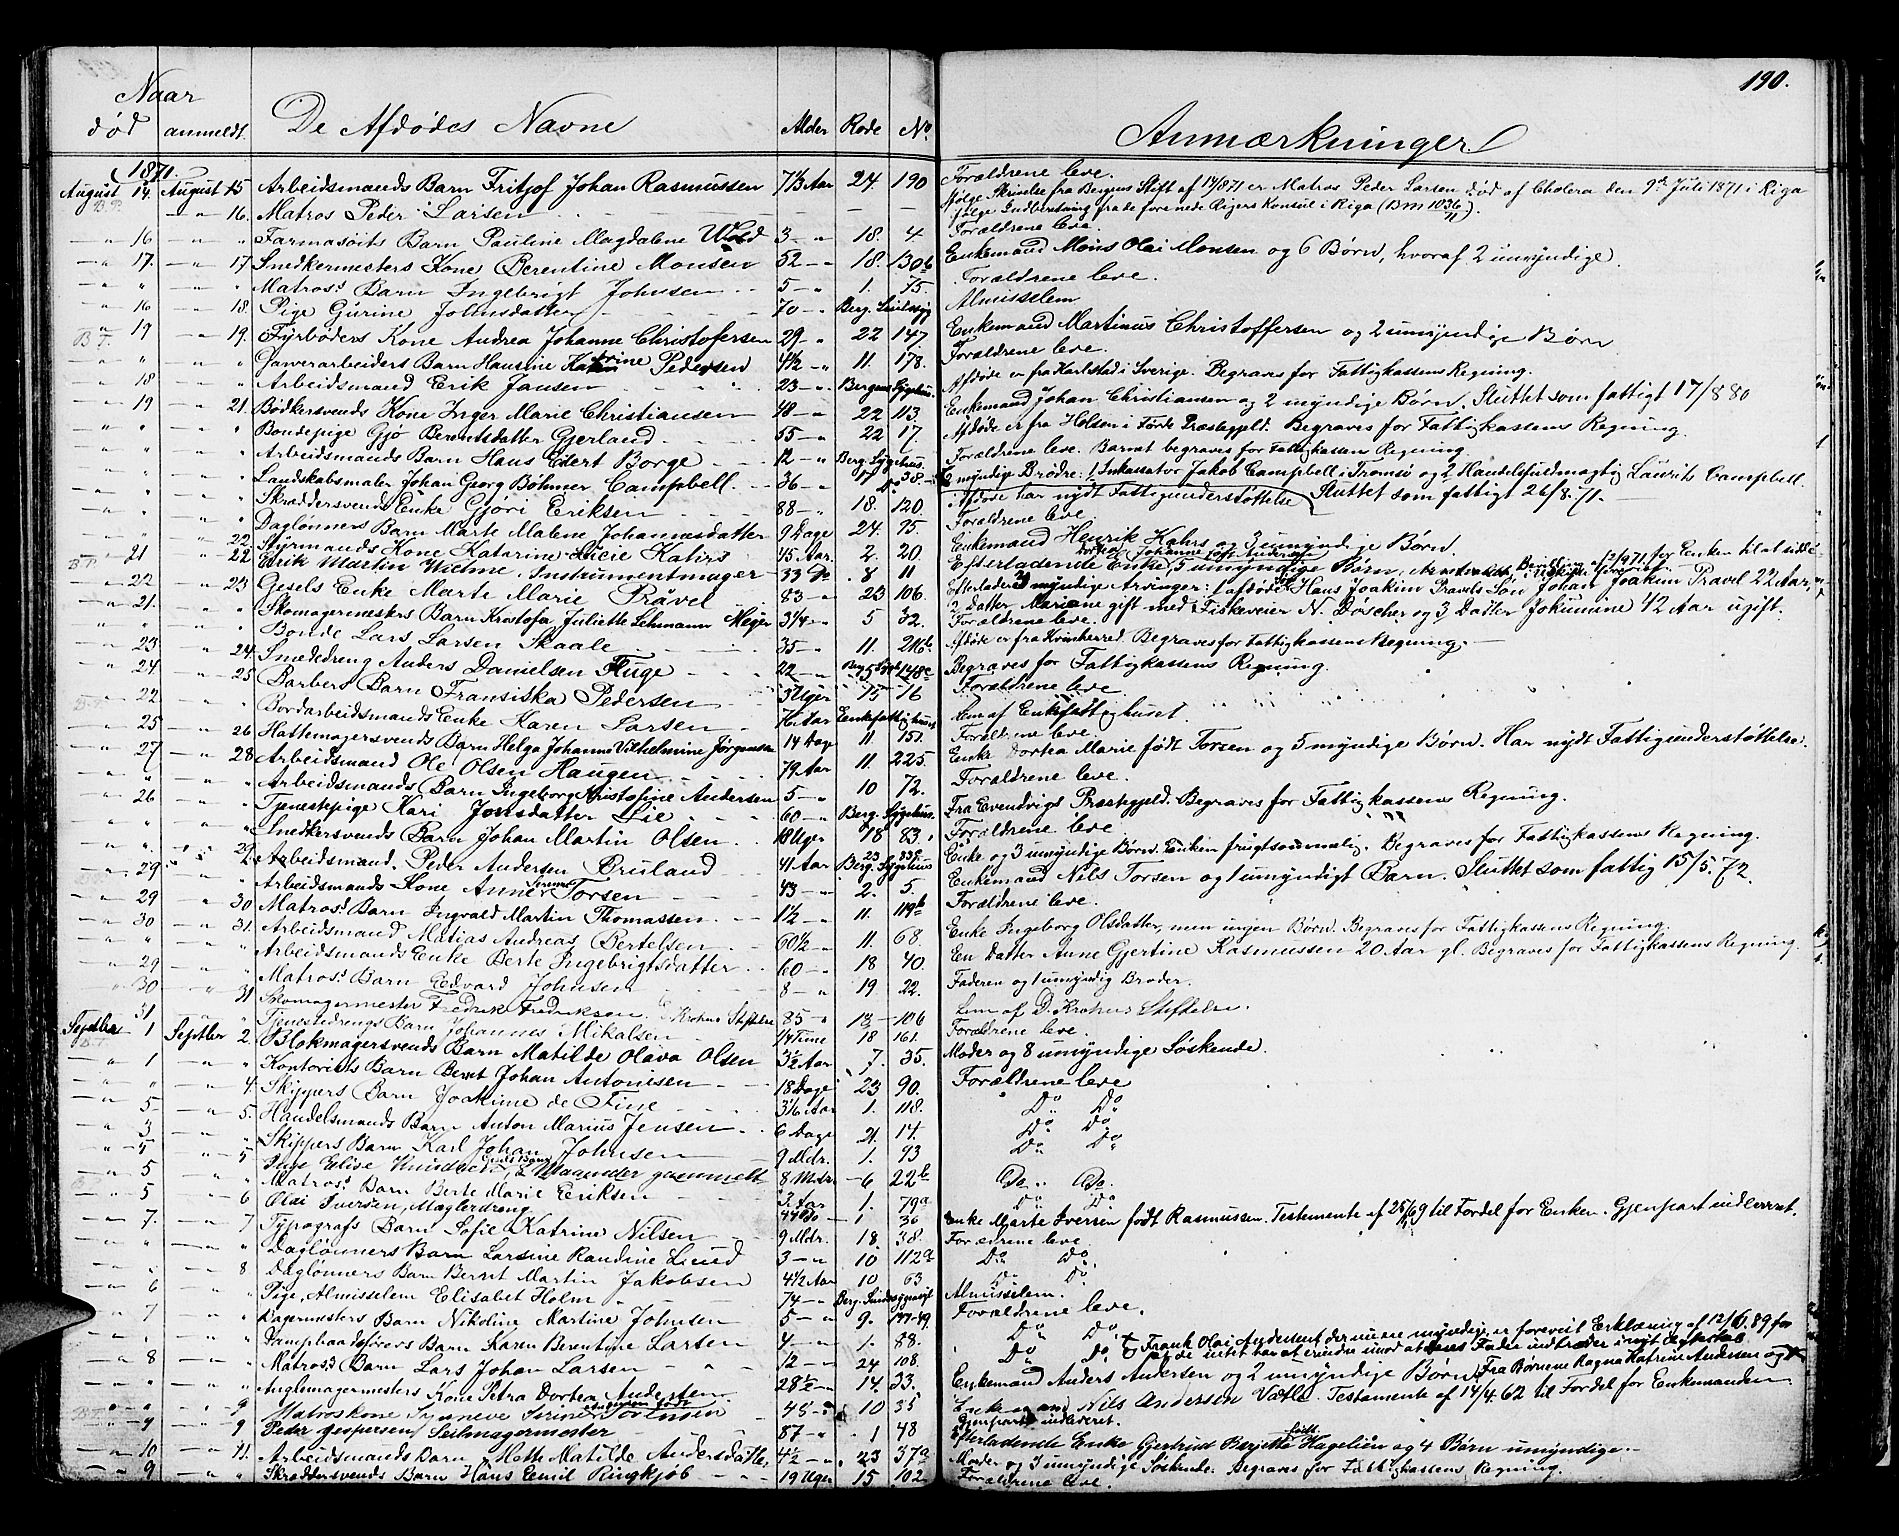 190.
Naar
død anmeldt. De Afdødes Navne Alder Rode No. Anmærkninger
1871.
August 14. August 15 Arbeidsmands Barn Fritjof Johan Rasmussen 7 1/3 Aar 24. 190 Forældrene leve.
— " 16. Matros Peder Larsen — — — ifølge Skrivelse fra Bergens Stift af 14/8 71 er Matros Peder Larsen død af Cholera den 9de Juli 1871 i Riga
ifølge Indberetning fra de forenede Rigers Konsul i Riga (BM 1036/71).
— " 16 — " " Farmasøits Barn Pauline Magdalene Wold 3 — " 18. 4. Forældrene leve.
— " 17. — " 17. Snedkermesters Kone Berentine Monsen 52 — " 18. 130b Enkemand Mons Olai Monsen og 6 Børn, hvoraf 2 umyndige.
— " " — " " Matros's Barn Ingebrigt Johnsen 5 — " 1. 75. Forældrene leve.
— " 16 — " 18. Pige Gurine Johnsdatter 70 — " Berg. Almisselem
— " 19 — " 19. Fyrbøders Kone Andrea Johanne Christofersen 29 — " 22 147. Enkemand Martinus Christoffersen og 2 umyndige Børn
— " " — " " Garverarbeiders Barn Hansine Katrine Pedersen 4 1/2 — " 11. 178. Forældrene leve.
— " 18 — " " Arbeidsmand Erik Jansen 23 — " Bergens Sygehus. Afdøde er fra Karlstad i Sverige. Begraves for Fattigkassens Regning.
— " 19 — " 21. Bødkersvends Kone Inger Marie Christiansen 48 — " 22 113. Enkemand Johan Christiansen og 2 myndige Børn. Sluttet som fattigt 17/8 80
— " " — " " Bondepige Gjø Berentsdatter Gjerland 55 — " 22 17. Afdøde er fra Holsen i Førde Præstegjeld. Begraves for Fattigkassens Regning.
— " " — " " Arbeidsmands Barn Hans Edert Borge 12 — " Berg. Sygehus. Forældrene leve. Barnet begraves for Fattigkassens Regning
— " " — " " Landskabsmaler Johan Georg Böhmer Campbell 36 — " 17 38. 2 myndige Brødre: 1 Inkassator Jakob Campbell i Tromsø og 2 Handelsfuldmægtig Laurits Campbell.
— " " — " " Skræddersvends Enke Gjøri Eriksen 88 — " 18. 120. Afdøde har nydt Fattigunderstøttelse Sluttet som fattigt 26/8. 71.
— " " — " " Daglønners Barn Marte Malene Johannesdatter 9 Dage 24. 95. Forældrene leve.
— " " — " 22. Styrmands Kone Katarine Lucie Kahrs 45 Aar 2. 20. Enkemand Henrik Kahrs og 3 umyndige Børn.
— " 21 — " 22 Erik Martin Wielme, Instrumentmager 33 Do 8 11 Efterladende Enke, 5 umyndige Børn,
— " 22 — " 23 Gesels Enke Marte Marie Pravel 83 — " 23 106. Efterlader 3 myndige Arvinger: 1 afdøde Hans Joakim Pravels Søn Johan Joakim Pravel 22 Aar,
2 Datter Mariane gift med Fiskeveier N. Døscher og 3 Datter Jokumine 42 Aar ugift.
— " 21. — " " Skomagermesters Barn Kristofa Juliette Lehmann Meyer 3 1/4 — " 5 32. Forældrene leve.
— " " — " " Bonde Lars Larsen Skaale 35 — " 11. 216b. Afdøde er fra Kvinherred. Begraves for Fattigkassens Regning.
— " 23 — " 24. Smededreng Anders Danielsen Fluge 22 — " Begraves for Fattigkassens Regning.
— " 24 — " 25 Barbers Barn Fransiska Pedersen 3 Uger 15 16 Forældrene leve.
— " 22 — " " Bordarbeidsmands Enke Karen Larsen 76 Aar Enkefattighuset Lem af Enkefattighuset.
— " 25 — " 26 Hattemagersvends Barn Helga Johanne Vilhelmine Jørgensen 14 Dage 11 151. Forældrene leve.
— " 27 — " 28 Arbeidsmand Ole Olsen Haugen 79 Aar 11. 225. Enke Dortea Marie født Torsen og 5 myndige Børn. Har nydt Fattigunderstøttelse.
— " " — " " Arbeidsmands Barn Ingeborg Kristofine Andersen 5 — " 10 72. Forældrene leve.
— " 26 — " " Tjenestepige Kari Jonsdatter Lie 60 — " Berg. Sygehus. Fra Evendvigs Præstegjeld. Begraves for Fattigkassens Regning.
— " " — " " Snedkersvends Barn Johan Martin Olsen 18 Uger 18 83. Forældrene leve
— " 29 — " 29. Arbeidsmand Peder Andersen Bruland 41 Aar Berg. Sygehus Enke og 3 umyndige Børn. Enken frugtsommelig. Begraves for Fattigkassens Regning.
— " 29 — " " Arbeidsmands Kone Anne Torsen 43 — " 2. 5. Enkemand Nils Torsen og 1 umyndigt Barn. Sluttet som fattig 15/5. 72.
— " 29 — " 30 Matros's Barn Ingvald Martin Thomassen 1 1/2 — " 11. 119b Forældrene leve.
— " 30 — " 31. Arbeidsmand Matias Andreas Bertelsen 60 1/2 — " 11. 68. Enke Ingeborg Olsdatter, men ingen Børn. Begraves for Fattigkassens Regning.
— " " — " " Arbeidsmands Enke Berte Ingebrigtsdatter 60 — " 18 40. En Datter Anne Gjertine Rasmussen 20 Aar gl. Begraves for Fattigkassens Regning.
— " 29 — " " Matros's Barn Edvard Johnsen 8 — " 19 22. Faderen og 1 umyndig Broder.
— " 30 — " 31 Skomagermester Fredrik Fredriksen. Krohns Stiftelse 85 — " 13 106 Lem af D. Krohns Stiftelse.
— " 31 — " " Tjenestedrengs Barn Johannes Mikalsen 14 Time 18 161. Forældrene leve.
Septbr 1 Septbr 2. Blokmagersvends Barn Matilde Olava Olsen 3 1/2 Aar 7. 35. Moder og 8 umyndige Søskende.
— " 1 — " " Kontorists Barn Bernt Johan Antonisen 18 Dage 23 90. Forældrene leve
— " " — " 4. Skippers Barn Joakime de Fine 3 1/6 Aar 1. 118. Do Do
— " 5. — " 5. Handelsmands Barn Anton Marius Jensen 6 Dage 21. 14. Do Do
— " 3 — " " Skippers Barn Karl Johan Johnsen 9 Mdr. 1. 93 Do Do
— " 5 — " 5 Pige Elise Knudsen 8 Maaneder gammelt 8 Mdr — 6 22b Do Do
— " 5 — " " Matros's Barn Berte Marie Eriksen 3 Aar 1. 79a Do Do
— " 5 — " 6 Olai Iversen, Mæglerdreng 44 Do — 1 36 Enke Marte Iversen født Rasmussen. Testamente af 25/ 69 til Fordel for Enken. Gjenpart indleveret.
— " 7. — " 7 Typografs Barn Sofie Katrine Nilsen 9 Mdr. 18. 38. Forældrene leve.
— " " — " " Daglønners Barn Larsine Randine Lund 3 — " 10 112a Do Do
— " " — " 8 Daglønners Barn Bernt Martin Jakobsen 4 1/2 Aar 10 63 Do Do
— " 6 — " " Pige, Almisselem Elisabet Holm 74 — " Berg. Almisselem.
— " 7 — " " Bagermesters Barn Nikoline Martine Johnsen 5 — " 9. 147-49 Forældrene leve.
— " " — " " Dampbaadsførers Barn Karen Berentine Larsen 4 — " 1. 88. Do Do Frank Olai Andersen, der nu er myndig, er foreviist Erklæring af 12/6. 89 for
— " 8 — " " Matros's Barn Lars Johan Larsen 12 — " 24 108. Do Do
— " " — " " Anglemagermesters Kone Petra Dortea Andersen 28 1/2 — " 14. 33. Enkemand Anders Andersen og 2 umyndige Børn. Fra Børnene Ragna Katrine Andersen og
— " " — " 9 Matroskone Synneve Serine 48 — " 10 35 Enkemand Nils Andersen Vatle. Testamente af 14/4. 62 til Fordel for Enkemanden
Gjenpart indleveret.
— " 9 — " 9 Peder Jespersen Seilmagermester 87 — " 1 48 Efterladende Enke Gjertrud Berjitte født Hagelien og 4 Børn umyndige.
— " 10 — " 11. Arbeidsmands Barn Mette Matilde Andersdatter 4 1/2 — " 23 37a Moder og 3 umyndige Søskende. Begraves for Fattigkassens Regning.
— " 9 — " " Skræddersvends Barn Hans Emil Ringkjøb 19 Uger 15 102 Forældrene leve.